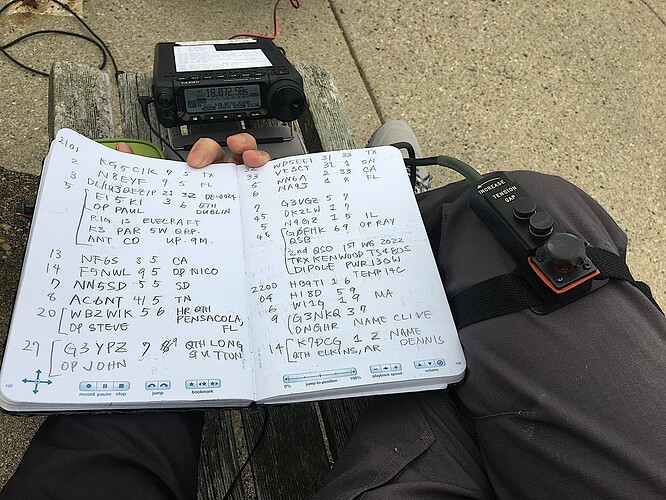 YAESU
18,072.58
2101
2 KG5CIK 7 5 TX
3 N8EYF 9 5 FL
5 DL/HB9QEZ/P 21 32 DE-0024
EI5KI 3 6 QTH
OP PAUL DUBLIN
RIG IS ELECRAFT
K3 PAR 5W QRP.
ANT CO UP 9M.
13 NF6S 3 5 CA
14 F5NWL 9 5 OP NICO
7 NN5SD 5 5 SD
8 AC6NT 4/5 TN
20 WB2WIK 5 6 HR QTH
OP STEVE PENSACOLA,
FL
27 G3YPZ 7 QTH LONG
OP JOHN SUTTON
record pause stop
jump
bookmark
32 WD5EEI 31 33 TX
33 VE3CT 31 1 ON
5 NN6A 2 33 CA
6 NA9J 1 8 FL
6 G3VGZ 5 7
45 DK2LW 2 1
5 N9GZ 1 5 IL
48 G0FHK 69 OP RAY
QSB
2nd QSO 1ST WS 2022
TRX KENWOOD TS480S
DIPOLE PWR 130W
TEMP 14C
2200 HB9TI 2 6
04 HI8D 5 9
6 WI1G 1 9 MA
9 G3NKQ 3 7
DNGHR NAME CLIVE
14 K7DCG 1 2 NAME
QTH ELKINS, AR DENNIS
0% jump to position 100%
playback speed
volume
INCREASE
TENSION
GAP